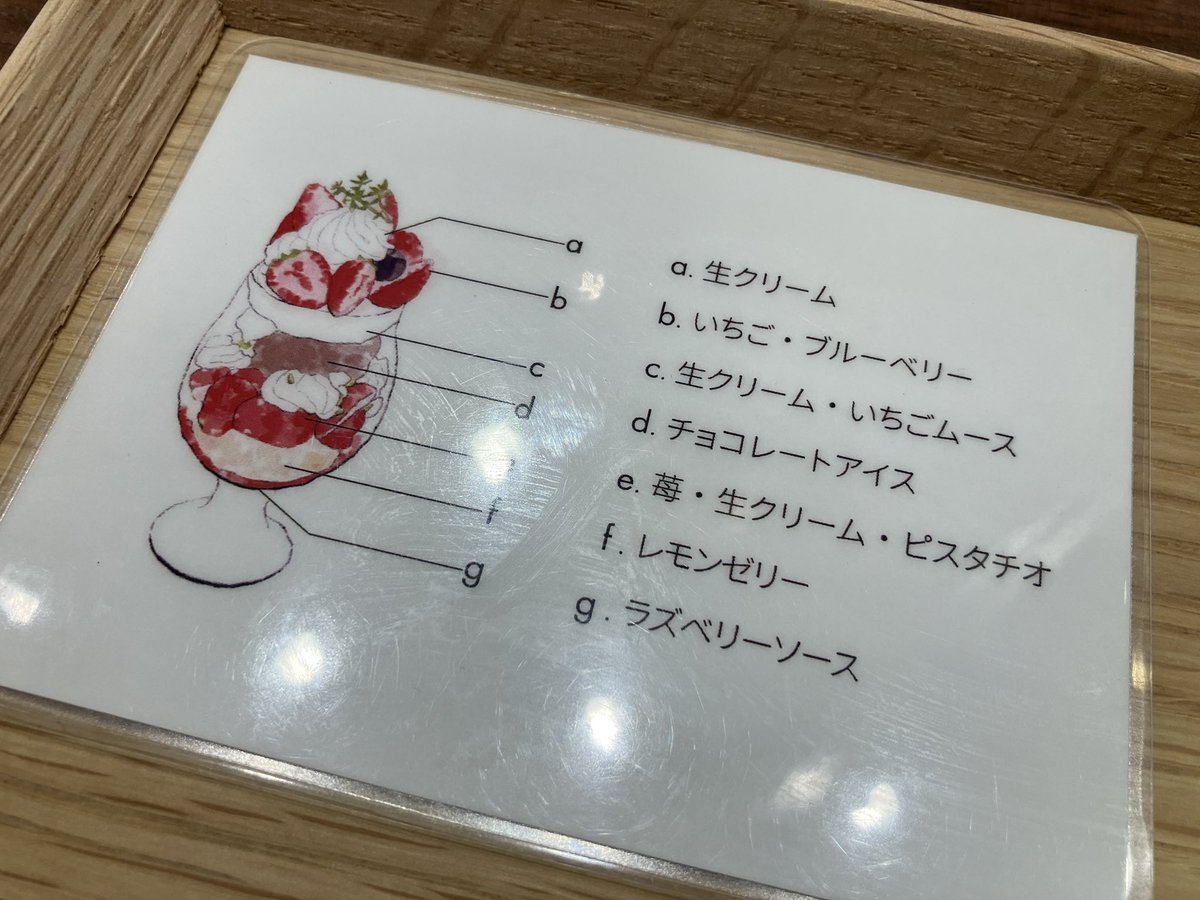 a
b
c
d
f
g
a. 生クリーム
b. いちご・ブルーベリー
c. 生クリーム・いちごムース
d. チョコレートアイス
e. 苺・生クリーム・ピスタチオ
f. レモンゼリー
g. ラズベリーソース